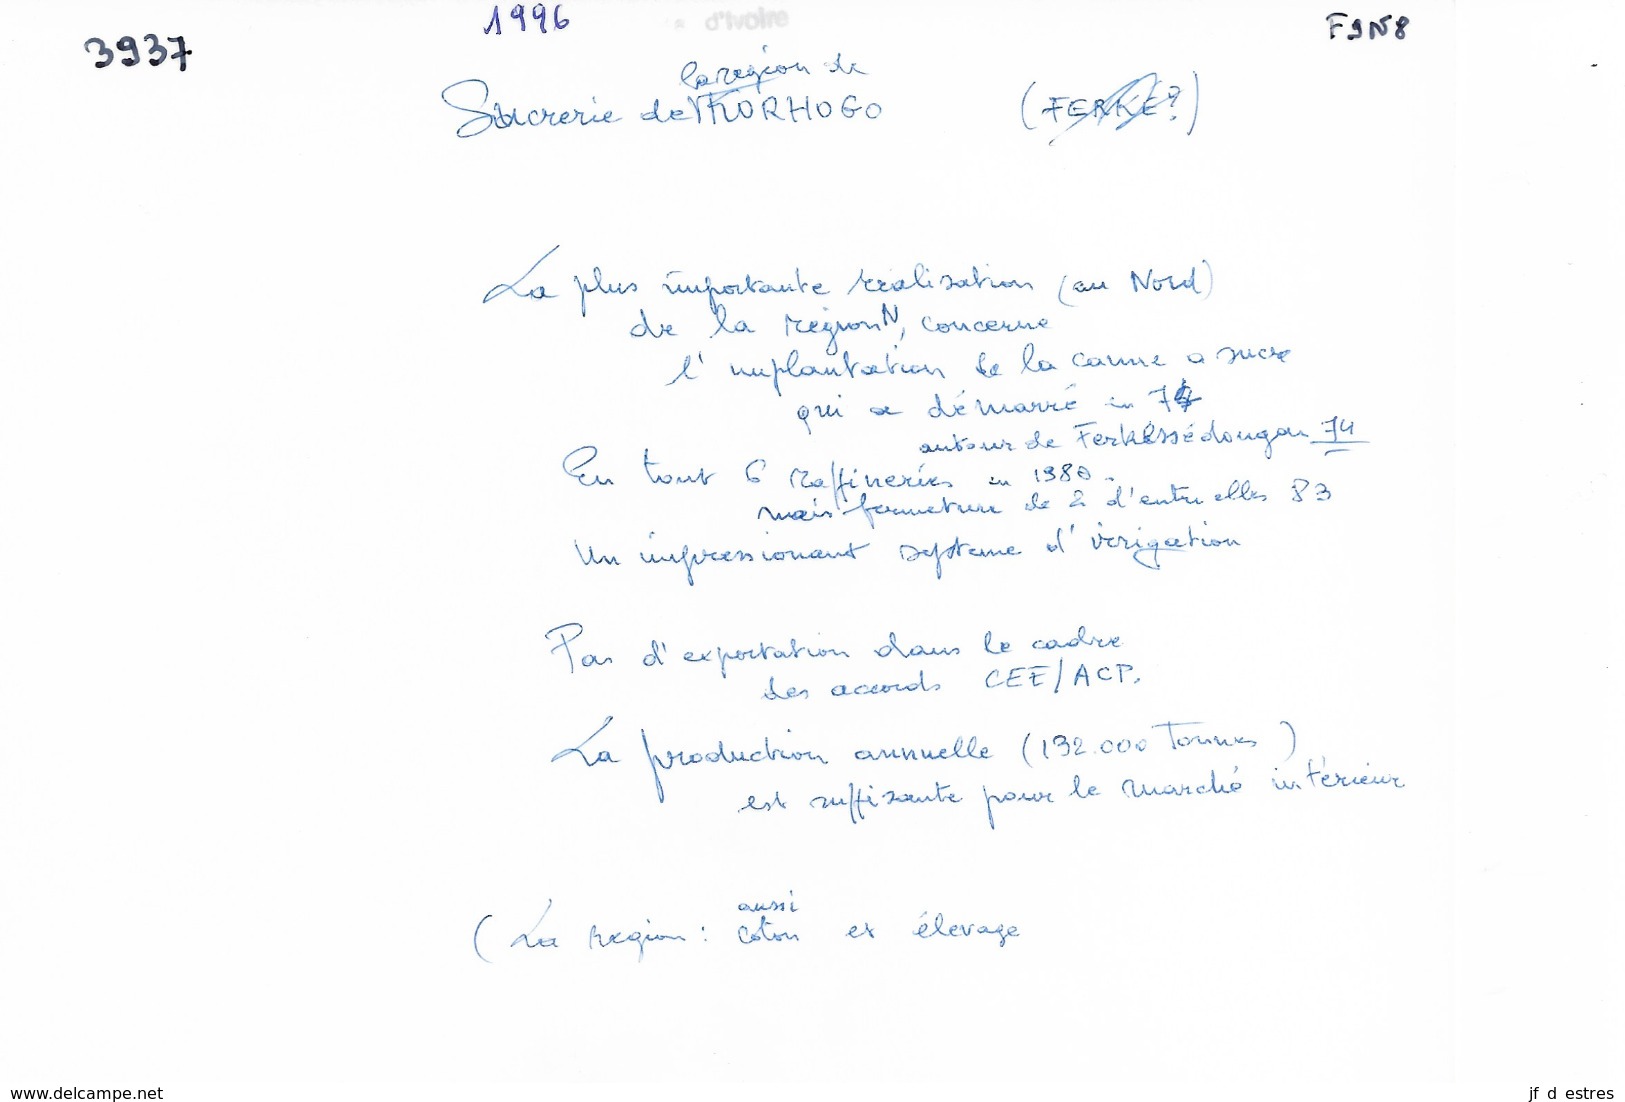 1996
d'Ivoire
F9N8
3937
la région de
Sucrerie de KORHOGO (FERKE?)
La plus importante réalisation (au Nord)
de la région N, concerne
l'implantation de la canne a sucre
qui a démarré en 74
autour de Ferkéssédougou 74
En tout 6 raffineries en 1980.
mais fermeture de 2 d'entre elles 83
Un impressionant système d'irrigation
Pas d'exportation dans le cadre
des accords CEE/ACP.
La production annuelle (132.000 Tonnes)
est suffisante pour le marché intérieur
aussi
(La région: coton et élevage
www.delcampe.net
jf d estres